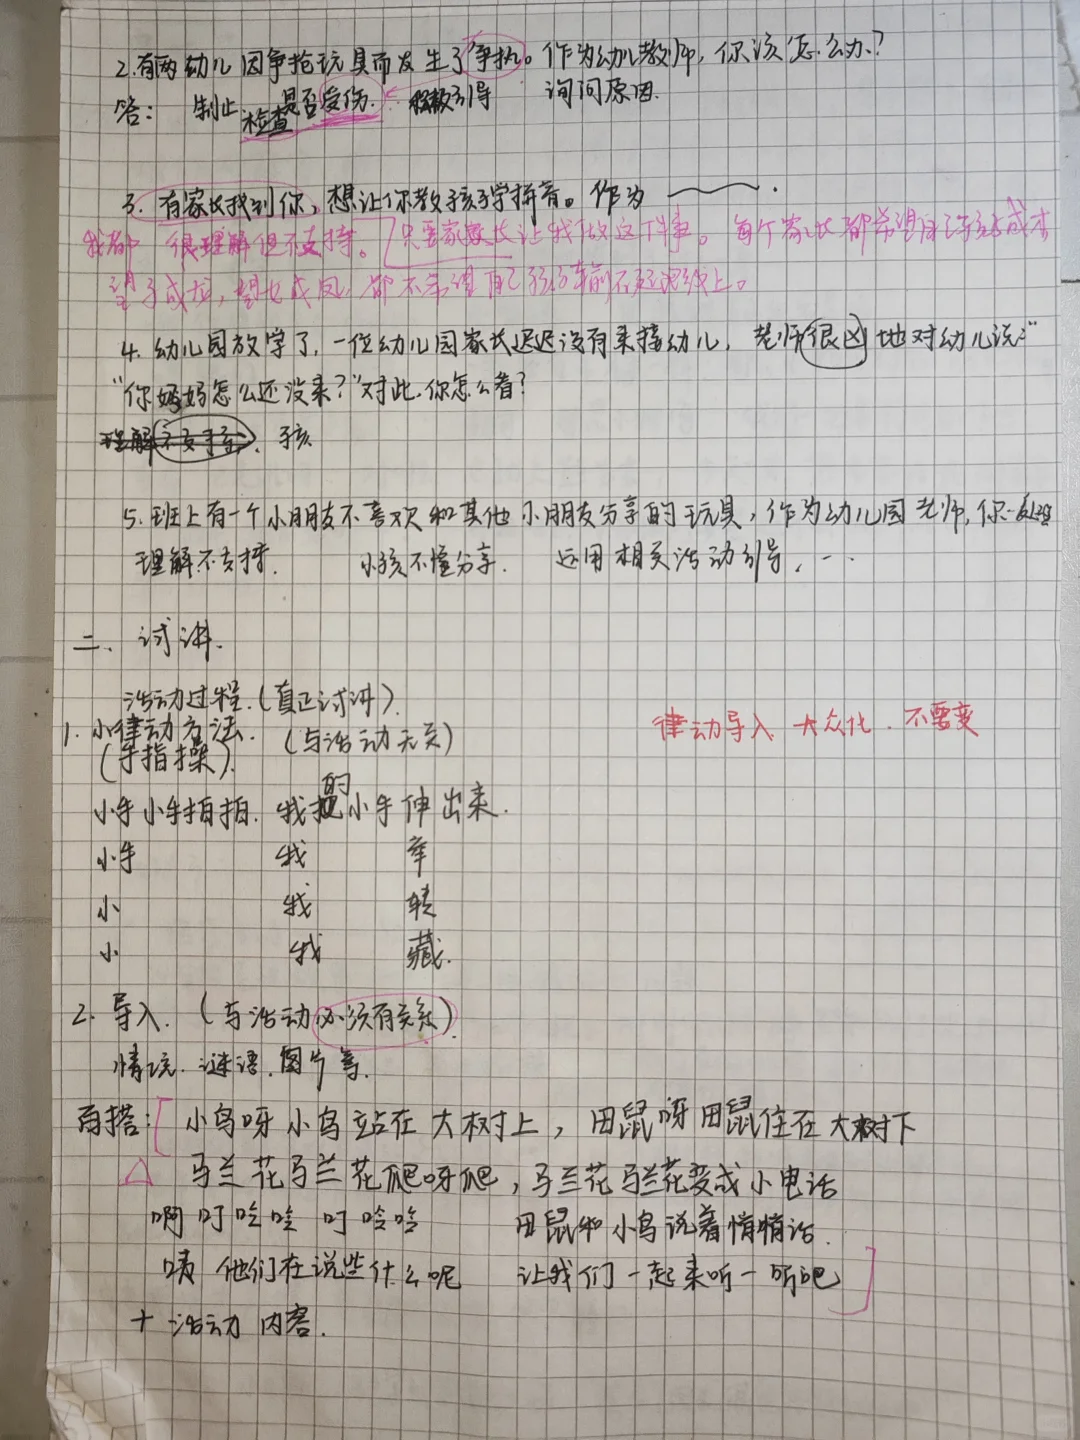 2.有两幼儿因争抢玩具而发生了争执。作为幼儿教师,你该怎么办?
答: 制止 检查是否受伤. 积极引导 询问原因.
3. 有家长找到你,想让你教孩子学拼音。作为 .
我都 很理解但不支持。只要家长让我做这件事。每个家长都希望自己孩子成才
望子成龙,望女成凤,都不希望自己孩子 在起跑线上。
4. 幼儿园放学了,一位幼儿园家长迟迟没有来接幼儿,老师很凶地对幼儿说:"
"你妈妈怎么还没来?"对此,你怎么看?
理解不支持. 孩
5. 班上有一个小朋友不喜欢和其他小朋友分享的玩具,作为幼儿园老师,你
理解不支持. 小孩不懂分享. 运用相关活动引导, …
二、试讲.
活动过程.(真正试讲).
1. 小律动方法. (与活动无关) 律动导入 大众化. 不需变
(手指操).
小手小手拍拍. 我的小手伸出来.
小手 我 举
小 我 转
小 我 藏.
2. 导入. (与活动必须有关系)
情境. 谜语. 图片等.
百搭: 小鸟呀小鸟站在大树上,田鼠呀田鼠住在大树下
△ 马兰花马兰花爬呀爬,马兰花马兰花变成小电话
啊 叮哈哈 叮哈哈 田鼠和小鸟说着悄悄话.
咦 他们在说些什么呢 让我们一起来听一听吧
+ 活动内容.